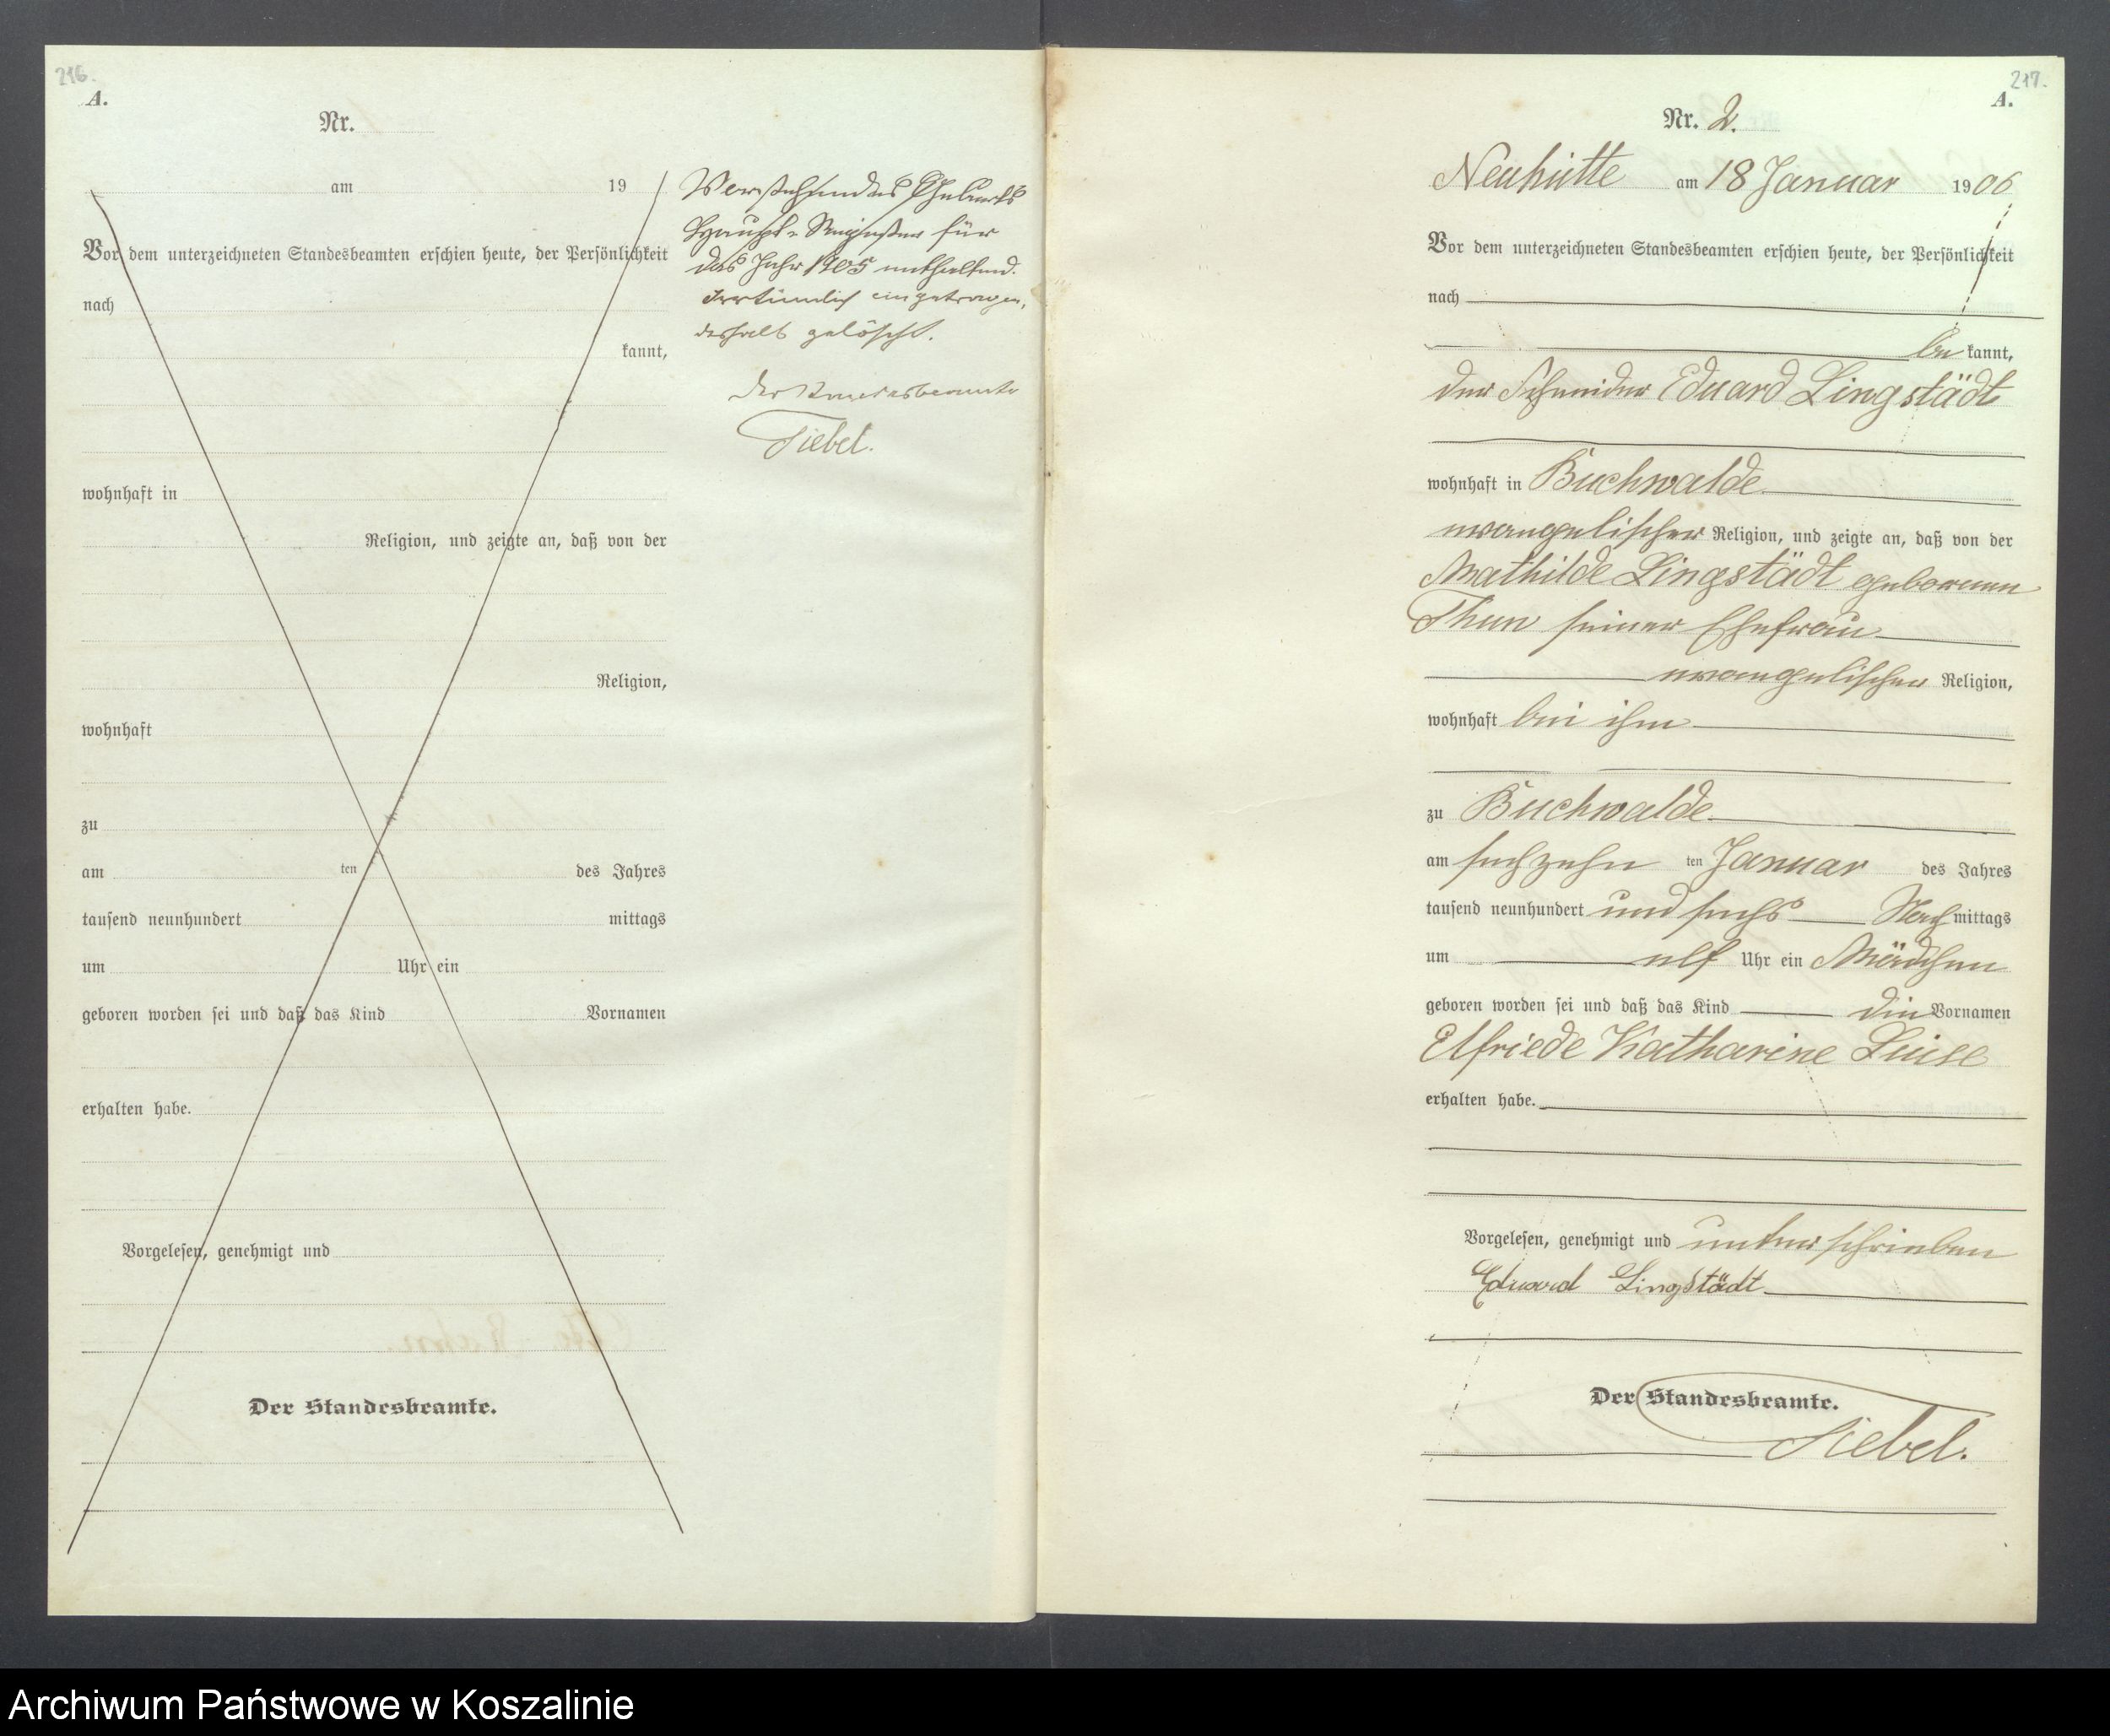 216.
A.
Nr.
am 19
Vor dem unterzeichneten Standesbeamten erschien heute, der Persönlichkeit
nach
kannt,
wohnhaft in
Religion, und zeigte an, daß von der
Religion,
wohnhaft
zu
am ten des Jahres
tausend neunhundert mittags
um Uhr ein
geboren worden sei und daß das Kind Vornamen
erhalten habe.
Vorgelesen, genehmigt und
Der Standesbeamte.
Vorstehendes Geburts
Haupt-Register für
das Jahr 1905 enthaltend.
Irrtümlich eingetragen,
deshalb gelöscht.
Der Standesbeamte
Siebel.
217.
A.
Nr. 2.
Neuhütte am 18 Januar 1906
Vor dem unterzeichneten Standesbeamten erschien heute, der Persönlichkeit
nach
be kannt,
der Schneider Eduard Lingstädt
wohnhaft in Buchwalde
evangelischer Religion, und zeigte an, daß von der
Mathilde Lingstädt geborenen
Thun seiner Ehefrau
evangelischer Religion,
wohnhaft bei ihm
zu Buchwalde
am sechzehn ten Januar des Jahres
tausend neunhundert und sechs Nach mittags
um elf Uhr ein Mädchen
geboren worden sei und daß das Kind die Vornamen
Elfriede Katharine Luise
erhalten habe.
Vorgelesen, genehmigt und unterschrieben
Eduard Lingstädt
Der Standesbeamte.
Siebel.
Archiwum Państwowe w Koszalinie